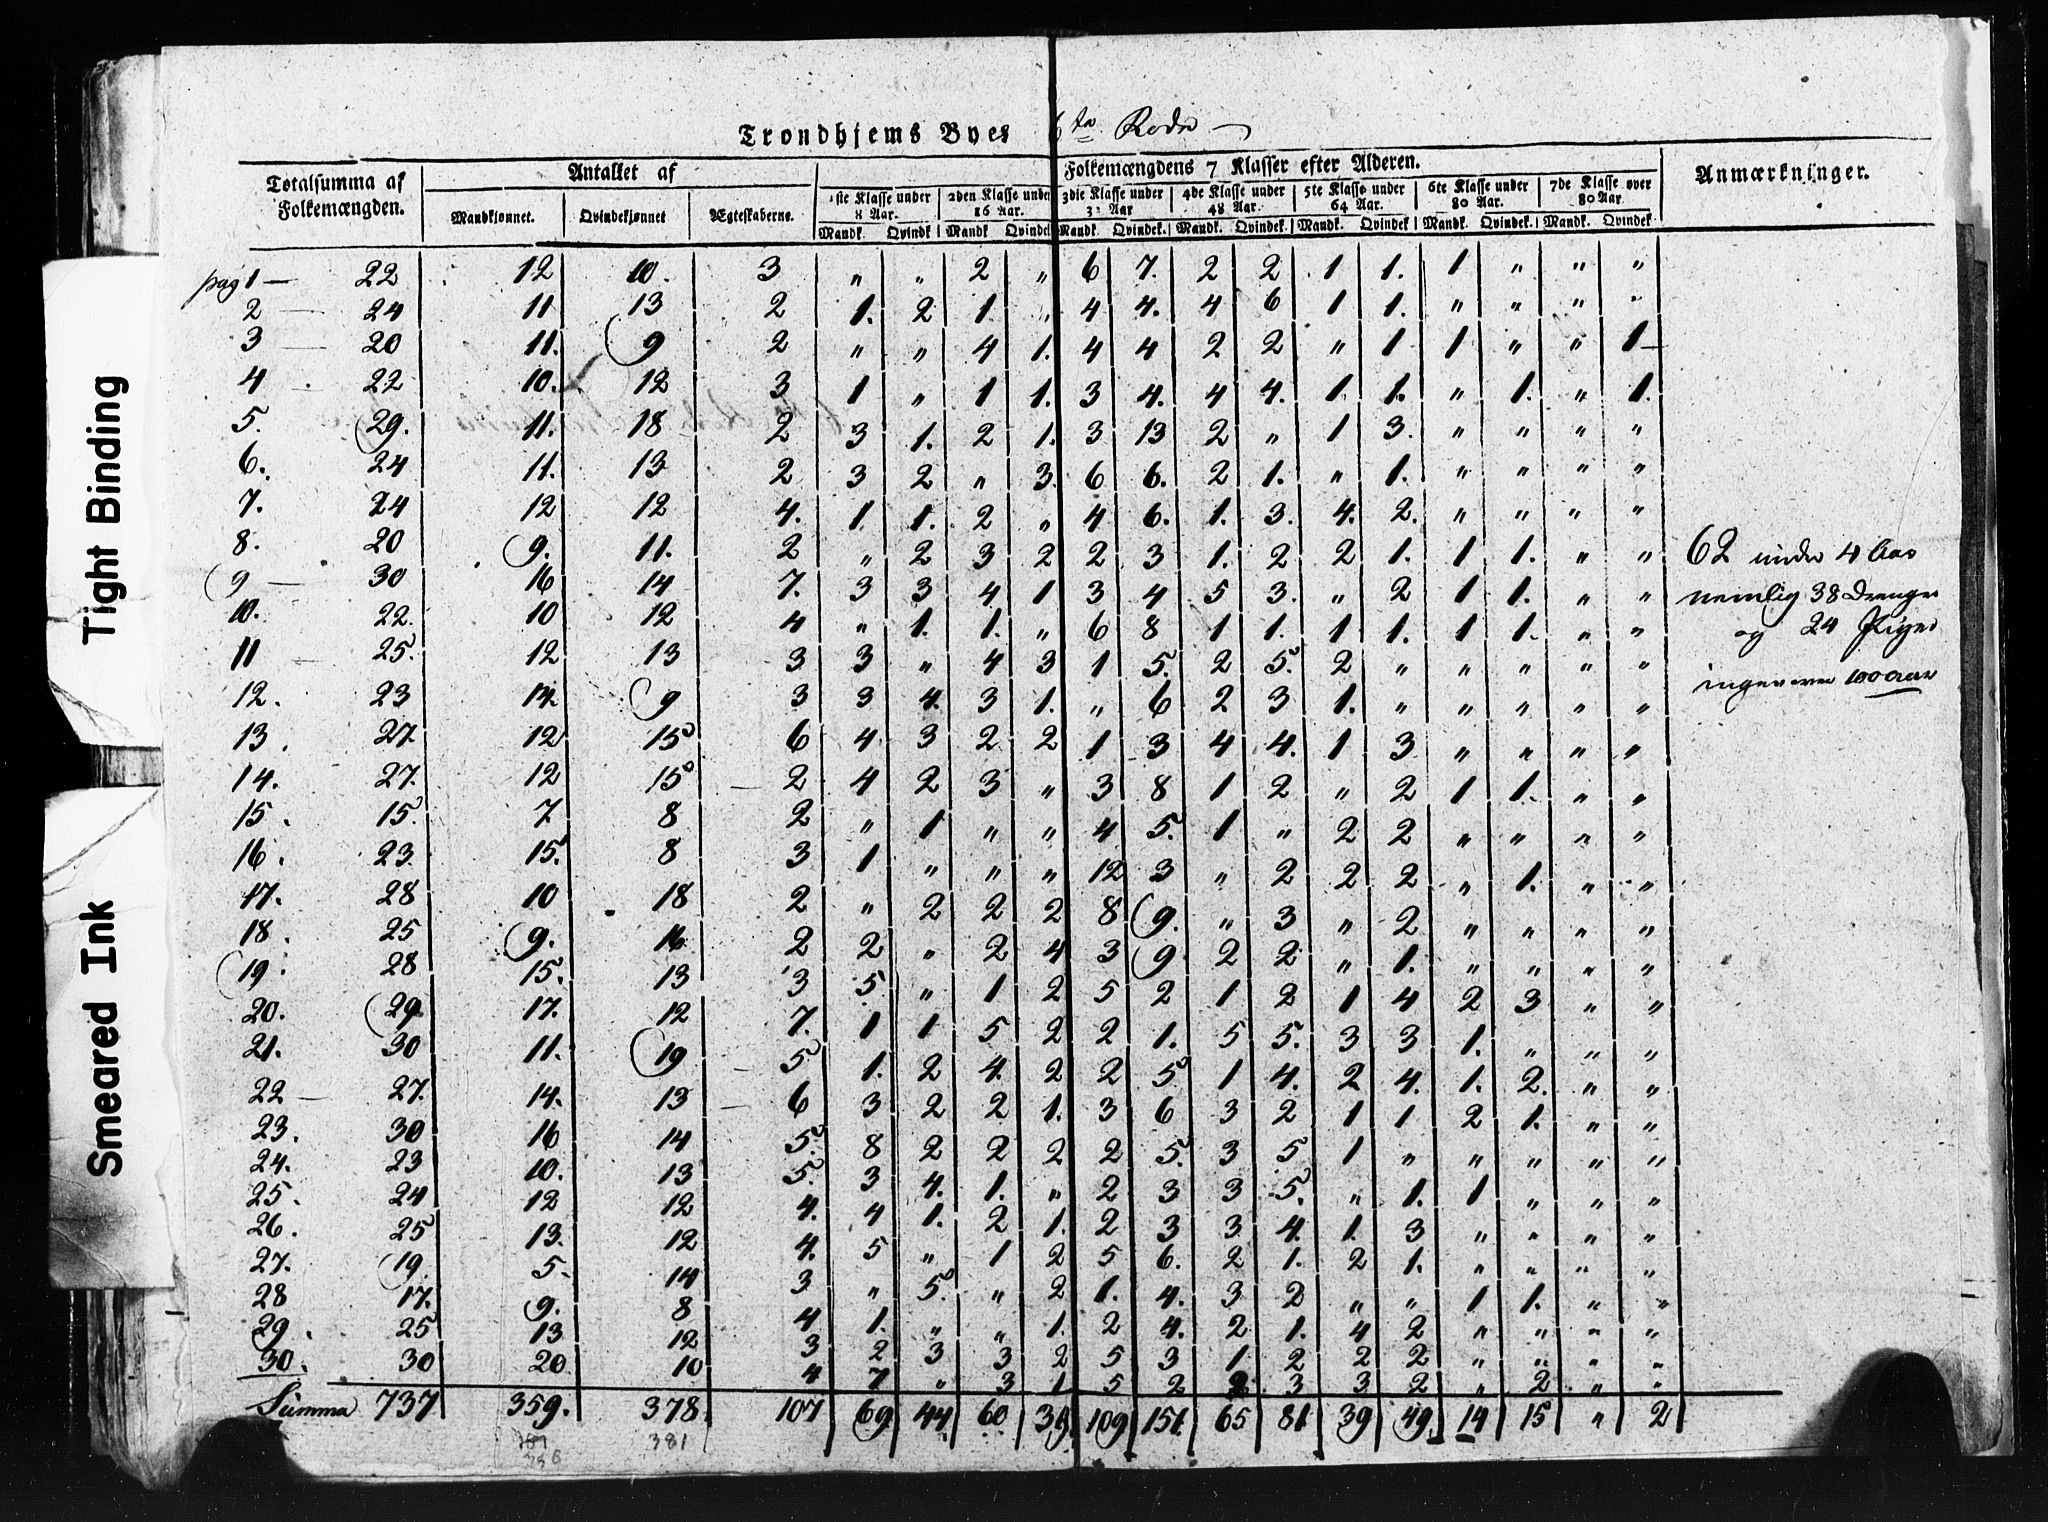 Trondhjems Byes 6te Rode
Totalsumma af Folkemængden. | Antallet af | Folkemængdens 7 Klasser efter Alderen. | Anmærkninger.
Mandkjønnet. | Qvindekjønnet | Ægteskaberne. | 1ste Klasse under 8 Aar. | 2den Klasse under 16 Aar. | 3die Klasse under 32 Aar | 4de Klasse under 48 Aar. | 5te Klasse under 64 Aar. | 6te Klasse under 80 Aar. | 7de Klasse over 80 Aar.
Mandk. Qvindk | Mandk Qvindek | Mandk. Qvindek. | Mandk. Qvindek. | Mandk. Qvindek. | Mandk. Qvindek. | Mandk. Qvindek
pag 1 — 22 12 10. 3 " " 2 " 6 7. 2 2 1 1. 1 " " "
2 — 24 11 13 2 1. 2 1. " 4 4. 4 6 1 1. " " " "
3 — 20 11. 9 2 " " 4 1. 4 4 2 2 " 1 1 " " 1
4 22 10. 12 3 1 " 1 1. 3 4. 4 4. 1. 1. " 1. " 1.
5. 29. 11. 18 2 3 1. 2 1. 3 13 2 " 1 3. " " " "
6. 24 11. 13 2 3 2 " 3. 6 6. 2 1. " 1. " " " "
7. 24 12 12 4. 1. 1. 2 " 4 6. 1. 3. 4. 2. " " " "
8. 20 9. 11. 2 " 2 3 2 2 3 1. 2 2 1. 1 1. " "
9 — 30 16 14 7. 3 3 4 1 3 4 5 3. " 2 1 1. " "
10. 22. 10 12 4 " 1. 1. " 6 8 1 1. 1 1. 1 1. " "
11 — 25. 12 13 3 3 " 4 3 1 5. 2 5. 2 " " " " "
12. 23 14. 9 3 3 4. 3 1. " 6 2 3 1. " " " " "
13. 27. 12 15 6 4 3 2 2 1 3 4 4. 1 3 " " " "
14. 27. 12 15 2 4 2 3 " 3 8 1 2 " 2 1 1. " "
15. 15. 7 8 2 " 1 " " 4 5. 1 " 2 2 " " " "
16. 23 15. 8 3 1 " " " 12 3 " 2 2 2 " 1. " "
17. 28 10 18 2 " 2 2 2 8 9. " 3 " 2 " " " "
18. 25 9. 16 2 2 " 2 4 3 9 2 2 " 1. " " " "
19. 28 15. 13 3 5 " 1 2 5 2 1 2 1 4 2 3 " "
20. 29 17. 12 7. 1 1 5 2 2 1. 5 5. 3 3 1. " " "
21. 30 11. 19 5 1. 2 4. 2 2 5 1 4. 2 4. 1. 2. " "
22 — 27. 14. 13 6 3 2 2 1. 3 6 3 2 1 1 2 1. " "
23. 30 16 14 5. 8 2 2 2 2 5. 3 5 1 " " " " "
24. 23 10. 13 5. 3 4. 1. " 2 3 3 5. " 1. 1 " " "
25. 24 12 12 4. 4 1. 2 1. 2 3 3. 4. 1. 3 " " " "
26. 25 13. 12 4. 5 " 1 2 5 6. 2 1. 2 1. " " " "
27. 19. 5. 14 3 " 5. " 2 1. 4. 3 2 " " 1 1. " "
28 17. 9. 8 4 1. " " 1. 2 4. 2 1. 4 2 " " " "
29. 25 13 12 3 2 3 3 2 5 3 1 2 2 2 " " " "
30. 30 20 10 4 7 " 3 1 5 2 2 3 3 2 " 2 " "
Summa 737 359. 378. 107 69 44 60 39 109 151 65 81 39 49. 14 15 " 2
381
62 under 4 Aar
nemlig 38 Drenge
og 24 Piger
ingen over 100 aar
Tight Binding
Smeared Ink